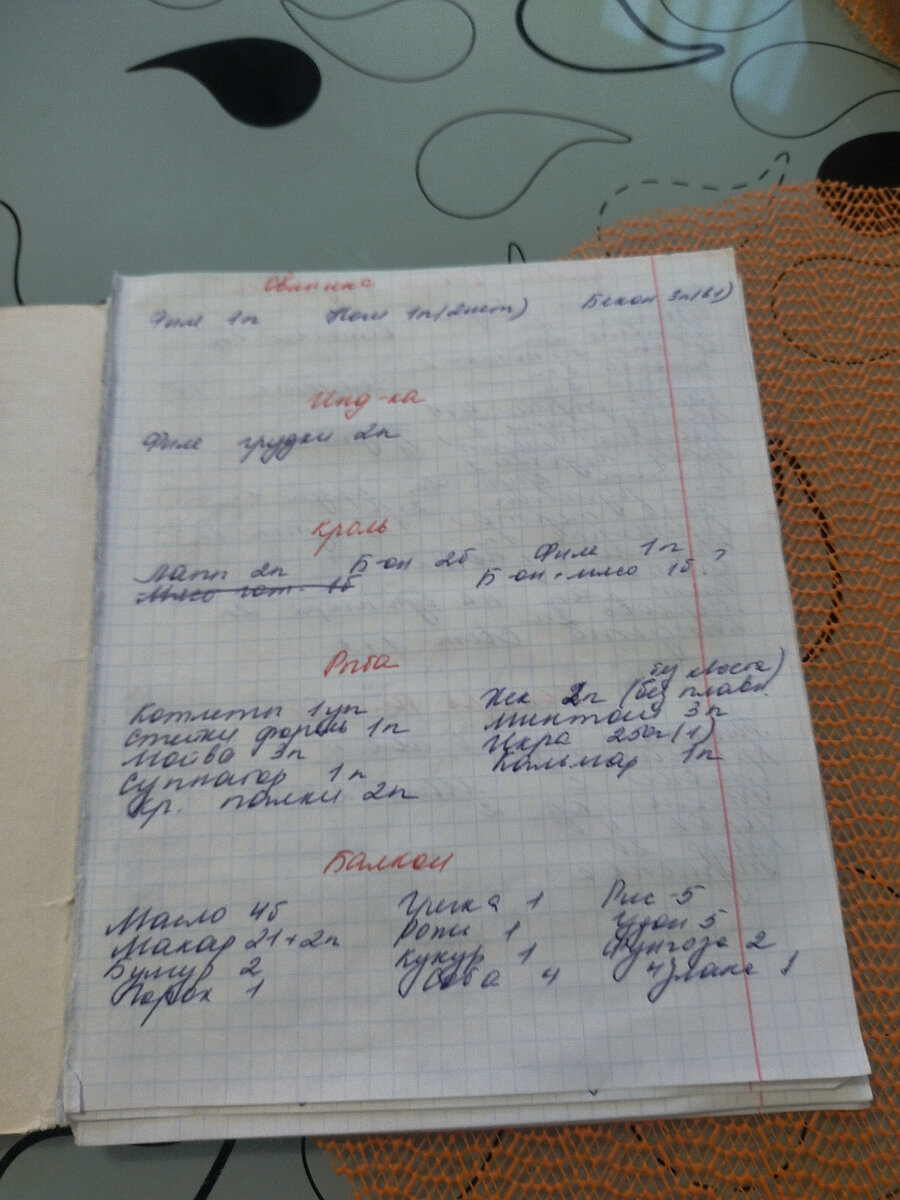 Овянина
Филе 1п Ноги 1п(2шт) Бекон 3п(в1)
Инд-ка
Филе грудки 2п
Кроль
Лапп 2п Б-он 2б Филе 1п
Мясо гот. 1б Б-он+мясо 1б.?
Рыба
Котлеты 1уп Хек 2п (без плавн.
Стейки форель 1п Минтай 3п
Мойва 3п Икра 250г(1)
Суппагор 1п Кальмар 1п
Кр. палки 2п
Балкон
Масло 4б Гречка 1 Рис 5
Макар 21+2п 1 Удон 5
Булгур 2 Кукур 1 Фунчоза 2
Горох 1 Соба 4 4злака 1